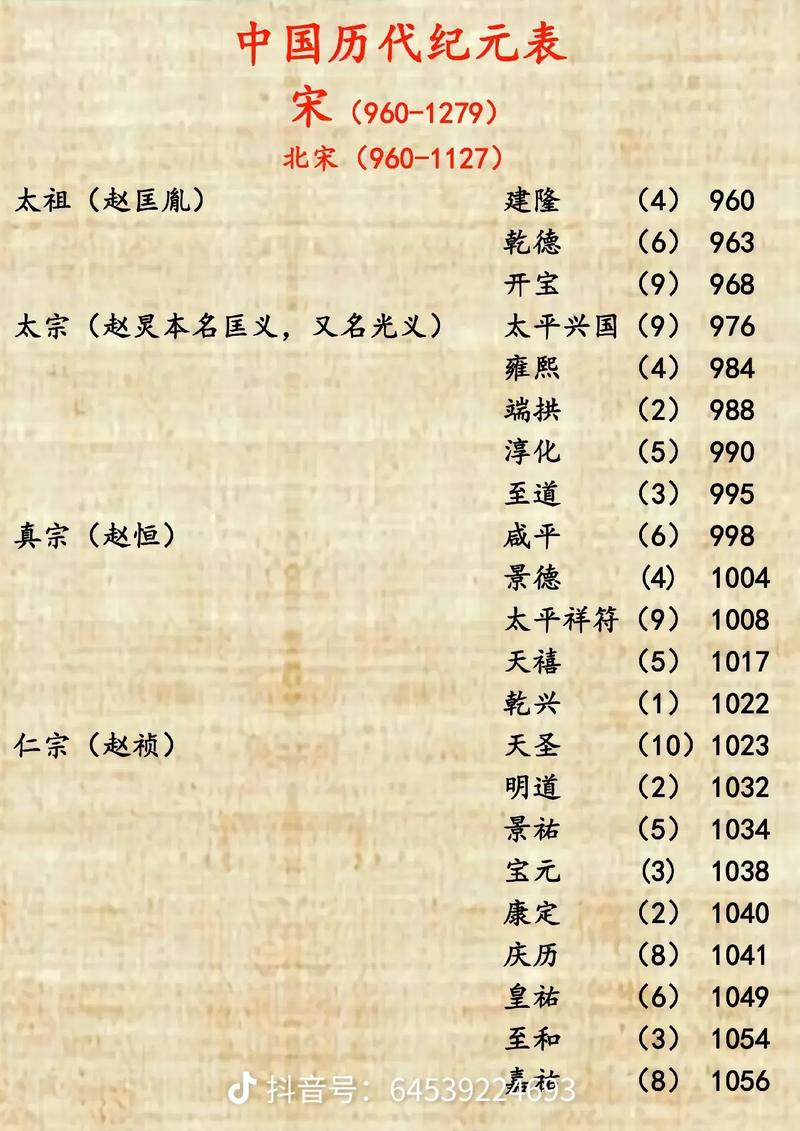 中国历代纪元表
宋（960-1279）
北宋（960-1127）
太祖（赵匡胤） 建隆 （4） 960
乾德 （6） 963
开宝 （9） 968
太宗（赵炅本名匡义，又名光义） 太平兴国（9） 976
雍熙 （4） 984
端拱 （2） 988
淳化 （5） 990
至道 （3） 995
真宗（赵恒） 咸平 （6） 998
景德 （4） 1004
太平祥符（9） 1008
天禧 （5） 1017
乾兴 （1） 1022
仁宗（赵祯） 天圣 （10）1023
明道 （2） 1032
景祐 （5） 1034
宝元 （3） 1038
康定 （2） 1040
庆历 （8） 1041
皇祐 （6） 1049
至和 （3） 1054
嘉祐 （8） 1056
抖音号：64539224693